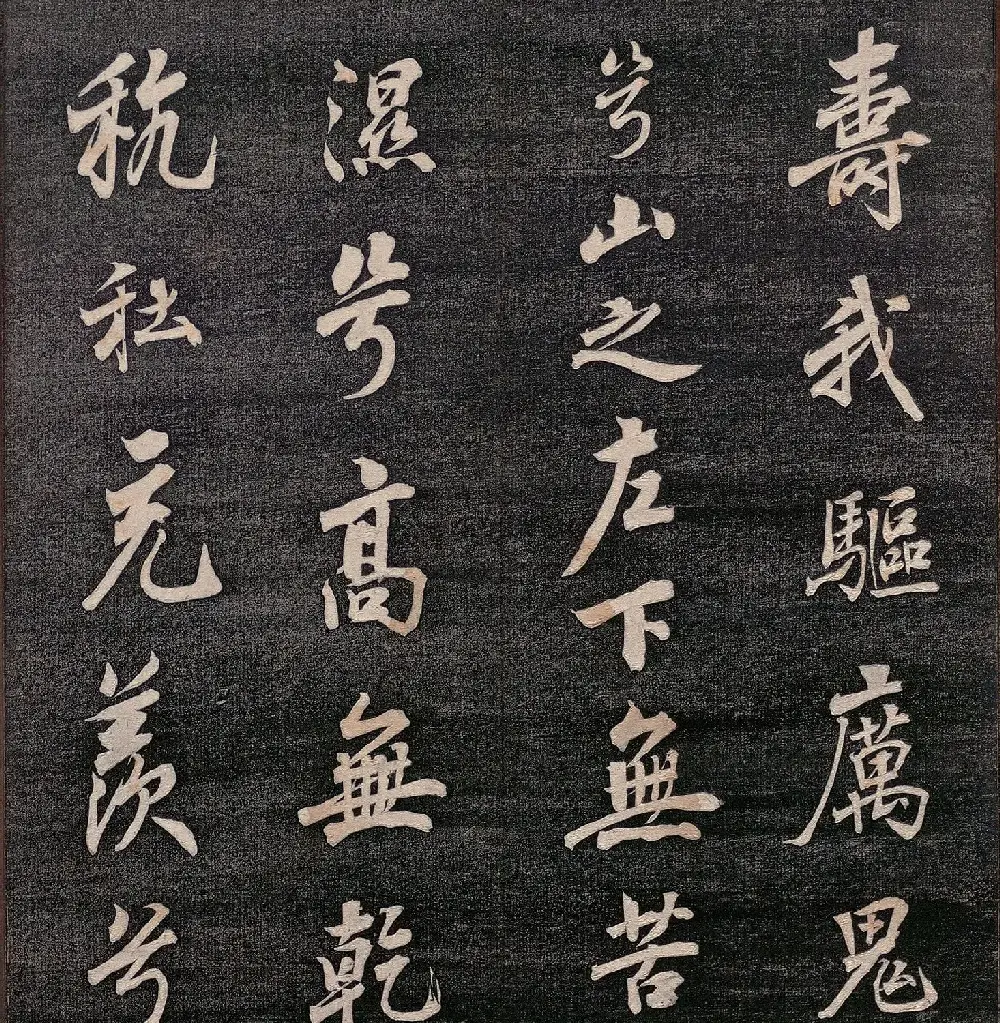 壽我驅厲鬼
兮山之左下無苦
濕兮高無乾
秔秫充羨兮